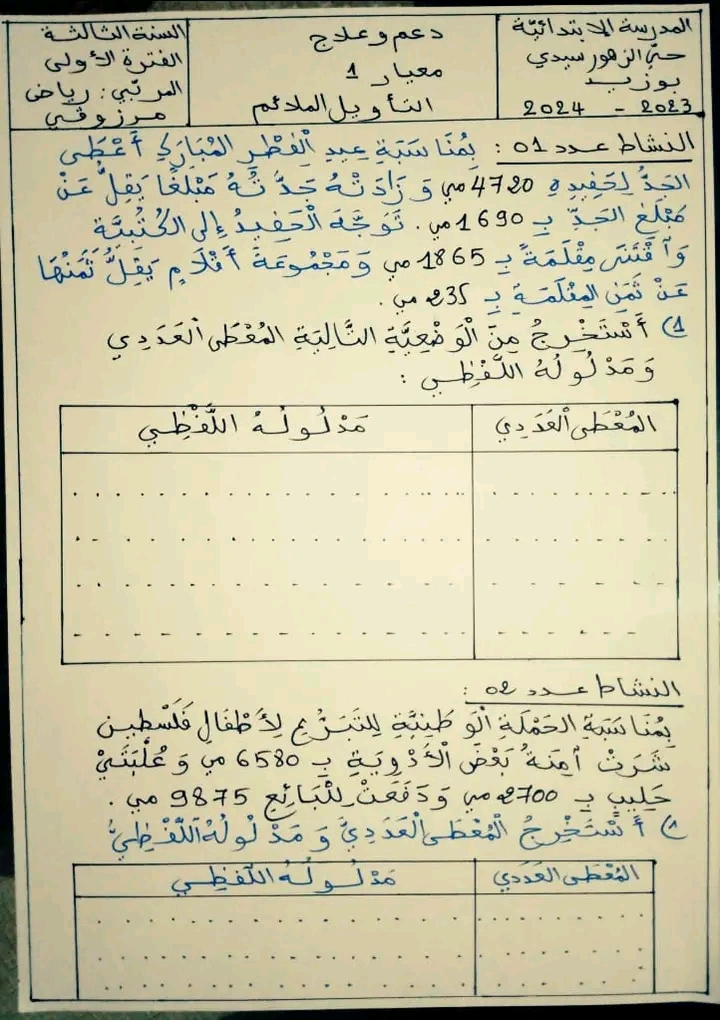 المدرسة الابتدائيّة
حيّ الزهور سيدي
بوزيد
2023 - 2024
دعم وعلاج
معيار 1
التأويل الملائم
السنة الثالثة
الفترة الأولى
المربّي: رياض
مرزوقي
النشاط عدد 01: بِمُنَاسَبَةِ عِيدِ الْفِطْرِ الْمُبَارَكِ أَعْطَى
الجَدُّ لِحَفِيدِهِ 4720 مي وَ زَادَتْهُ جَدَّتُهُ مَبْلَغًا يَقِلُّ عَنْ
مَبْلَغِ الجَدِّ بِ 1690 مي. تَوَجَّهَ الْحَفِيدُ إِلى الكُتُبِيَّة
وَ اقْتَنَى مِقْلَمَةً بِ 1865 مي وَ مَجْمُوعَةَ أَقْلَامٍ يَقِلُّ ثَمَنُهَا
عَنْ ثَمَنِ المِقْلَمَةِ بِ 235 مي.
1) أَسْتَخْرِجُ مِنَ الْوَضْعِيَّةِ التَّالِيَةِ المُعْطَى العَدَدِي
وَ مَدْلُولُهُ اللَّفْظِي:
المُعْطَى العَدَدِي	مَدْلُولُهُ اللَّفْظِي
النشاط عدد 02:
بِمُنَاسَبَةِ الحَمْلَةِ الْوَطَنِيَّةِ لِلتَبَرُّعِ لِأَطْفَالِ فَلَسْطِين
شَرَتْ آمِنَةُ بَعْضَ الْأَدْوِيَةِ بِ 6580 مي وَ عُلْبَتَيْ
حَلِيبٍ بِ 2700 مي وَ دَفَعَتْ لِلْبَائِعِ 9875 مي.
1) أَسْتَخْرِجُ الْمُعْطَى العَدَدِيَّ وَ مَدْلُولُهُ اللَّفْظِيُّ
المُعْطَى العَدَدِي	مَدْلُولُهُ اللَّفْظِي